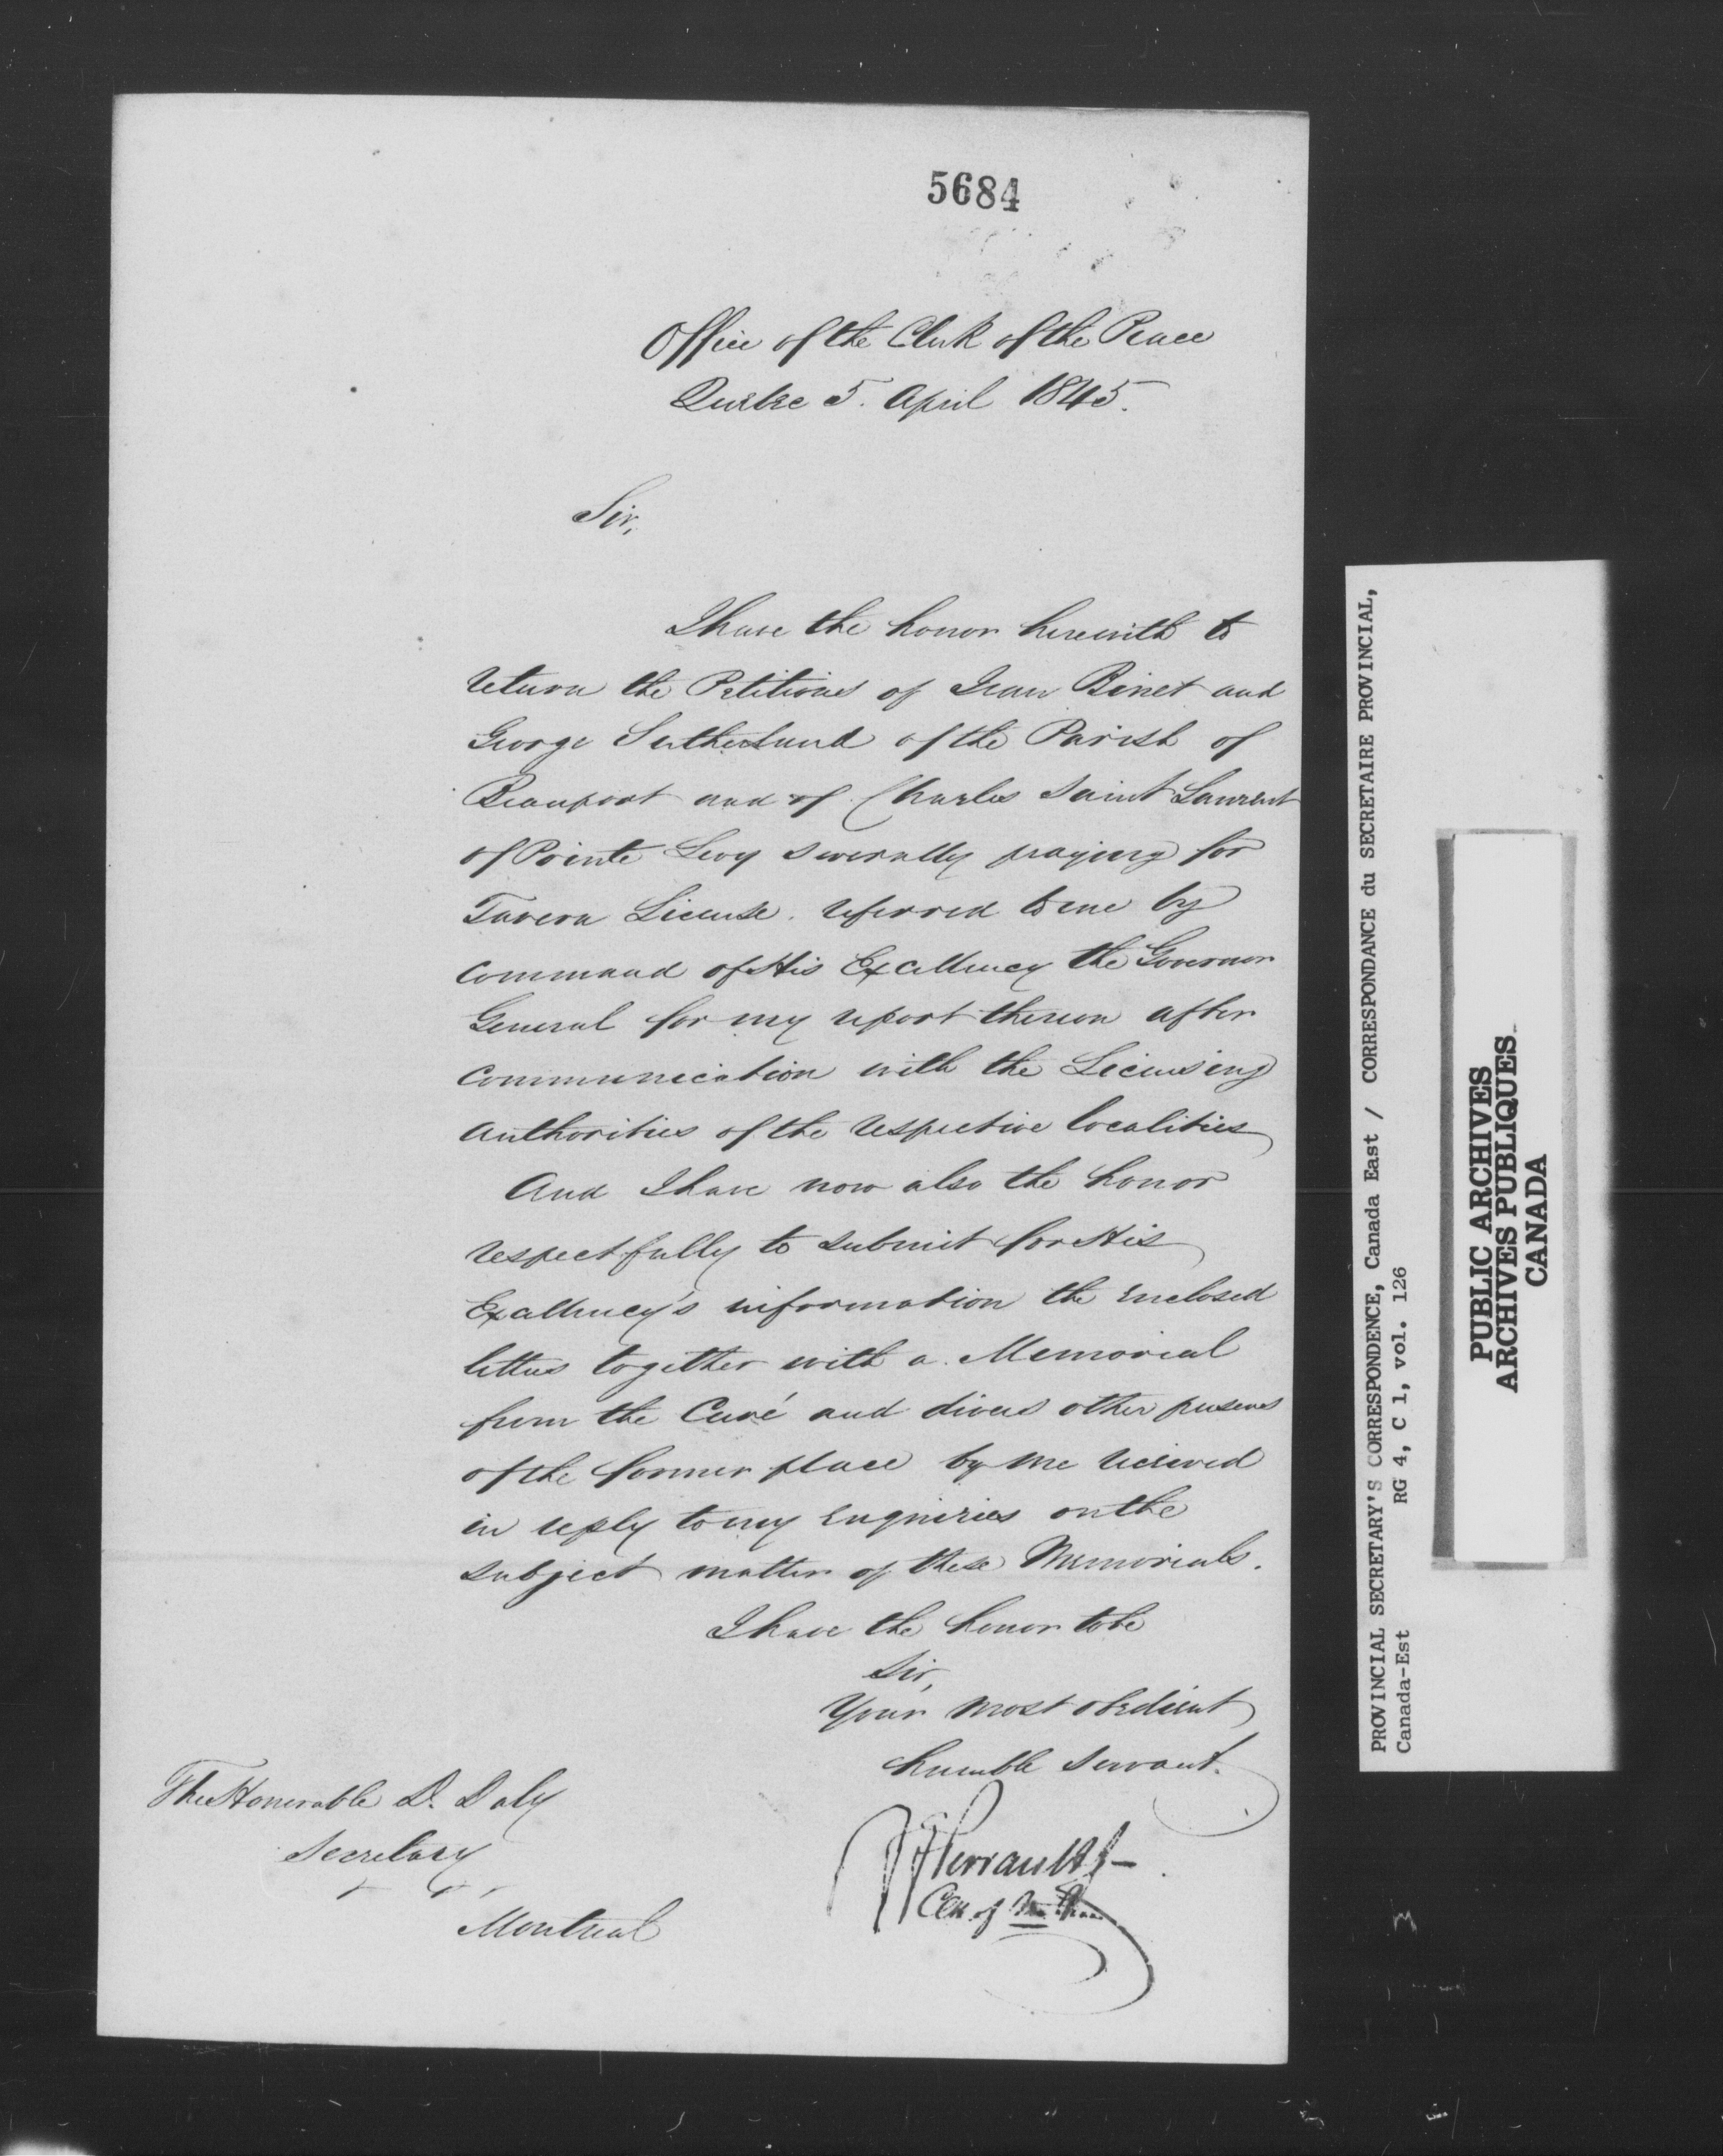 5684
Office of the Clerk of the Peace
Quebec 5. April 1845.
Sir,
I have the honor herewith to
return the Petitions of Jean Binet and
George Sutherland of the Parish of
Beauport and of Charles Saint Laurent
of Pointe Levy severally praying for
Tavern License. referred to me by
Command of His Excellency the Governor
General for my report thereon after
Communication with the Licensing
Authorities of the respective localities
And I have now also the honor
respectfully to submit for His
Excellency's information the enclosed
letters together with a Memorial
from the Curé and divers other persons
of the former place by me received
in reply to my Enquiries on the
subject matter of these Memorials.
I have the honor to be
Sir,
Your most obedient
humble Servant.
Perrault
Clk. of the Peace
The Honorable D. Daly
Secretary
Montreal
PROVINCIAL SECRETARY'S CORRESPONDENCE, Canada East / CORRESPONDANCE du SECRETAIRE PROVINCIAL,
Canada-Est RG 4, C 1, vol. 126
PUBLIC ARCHIVES
ARCHIVES PUBLIQUES
CANADA